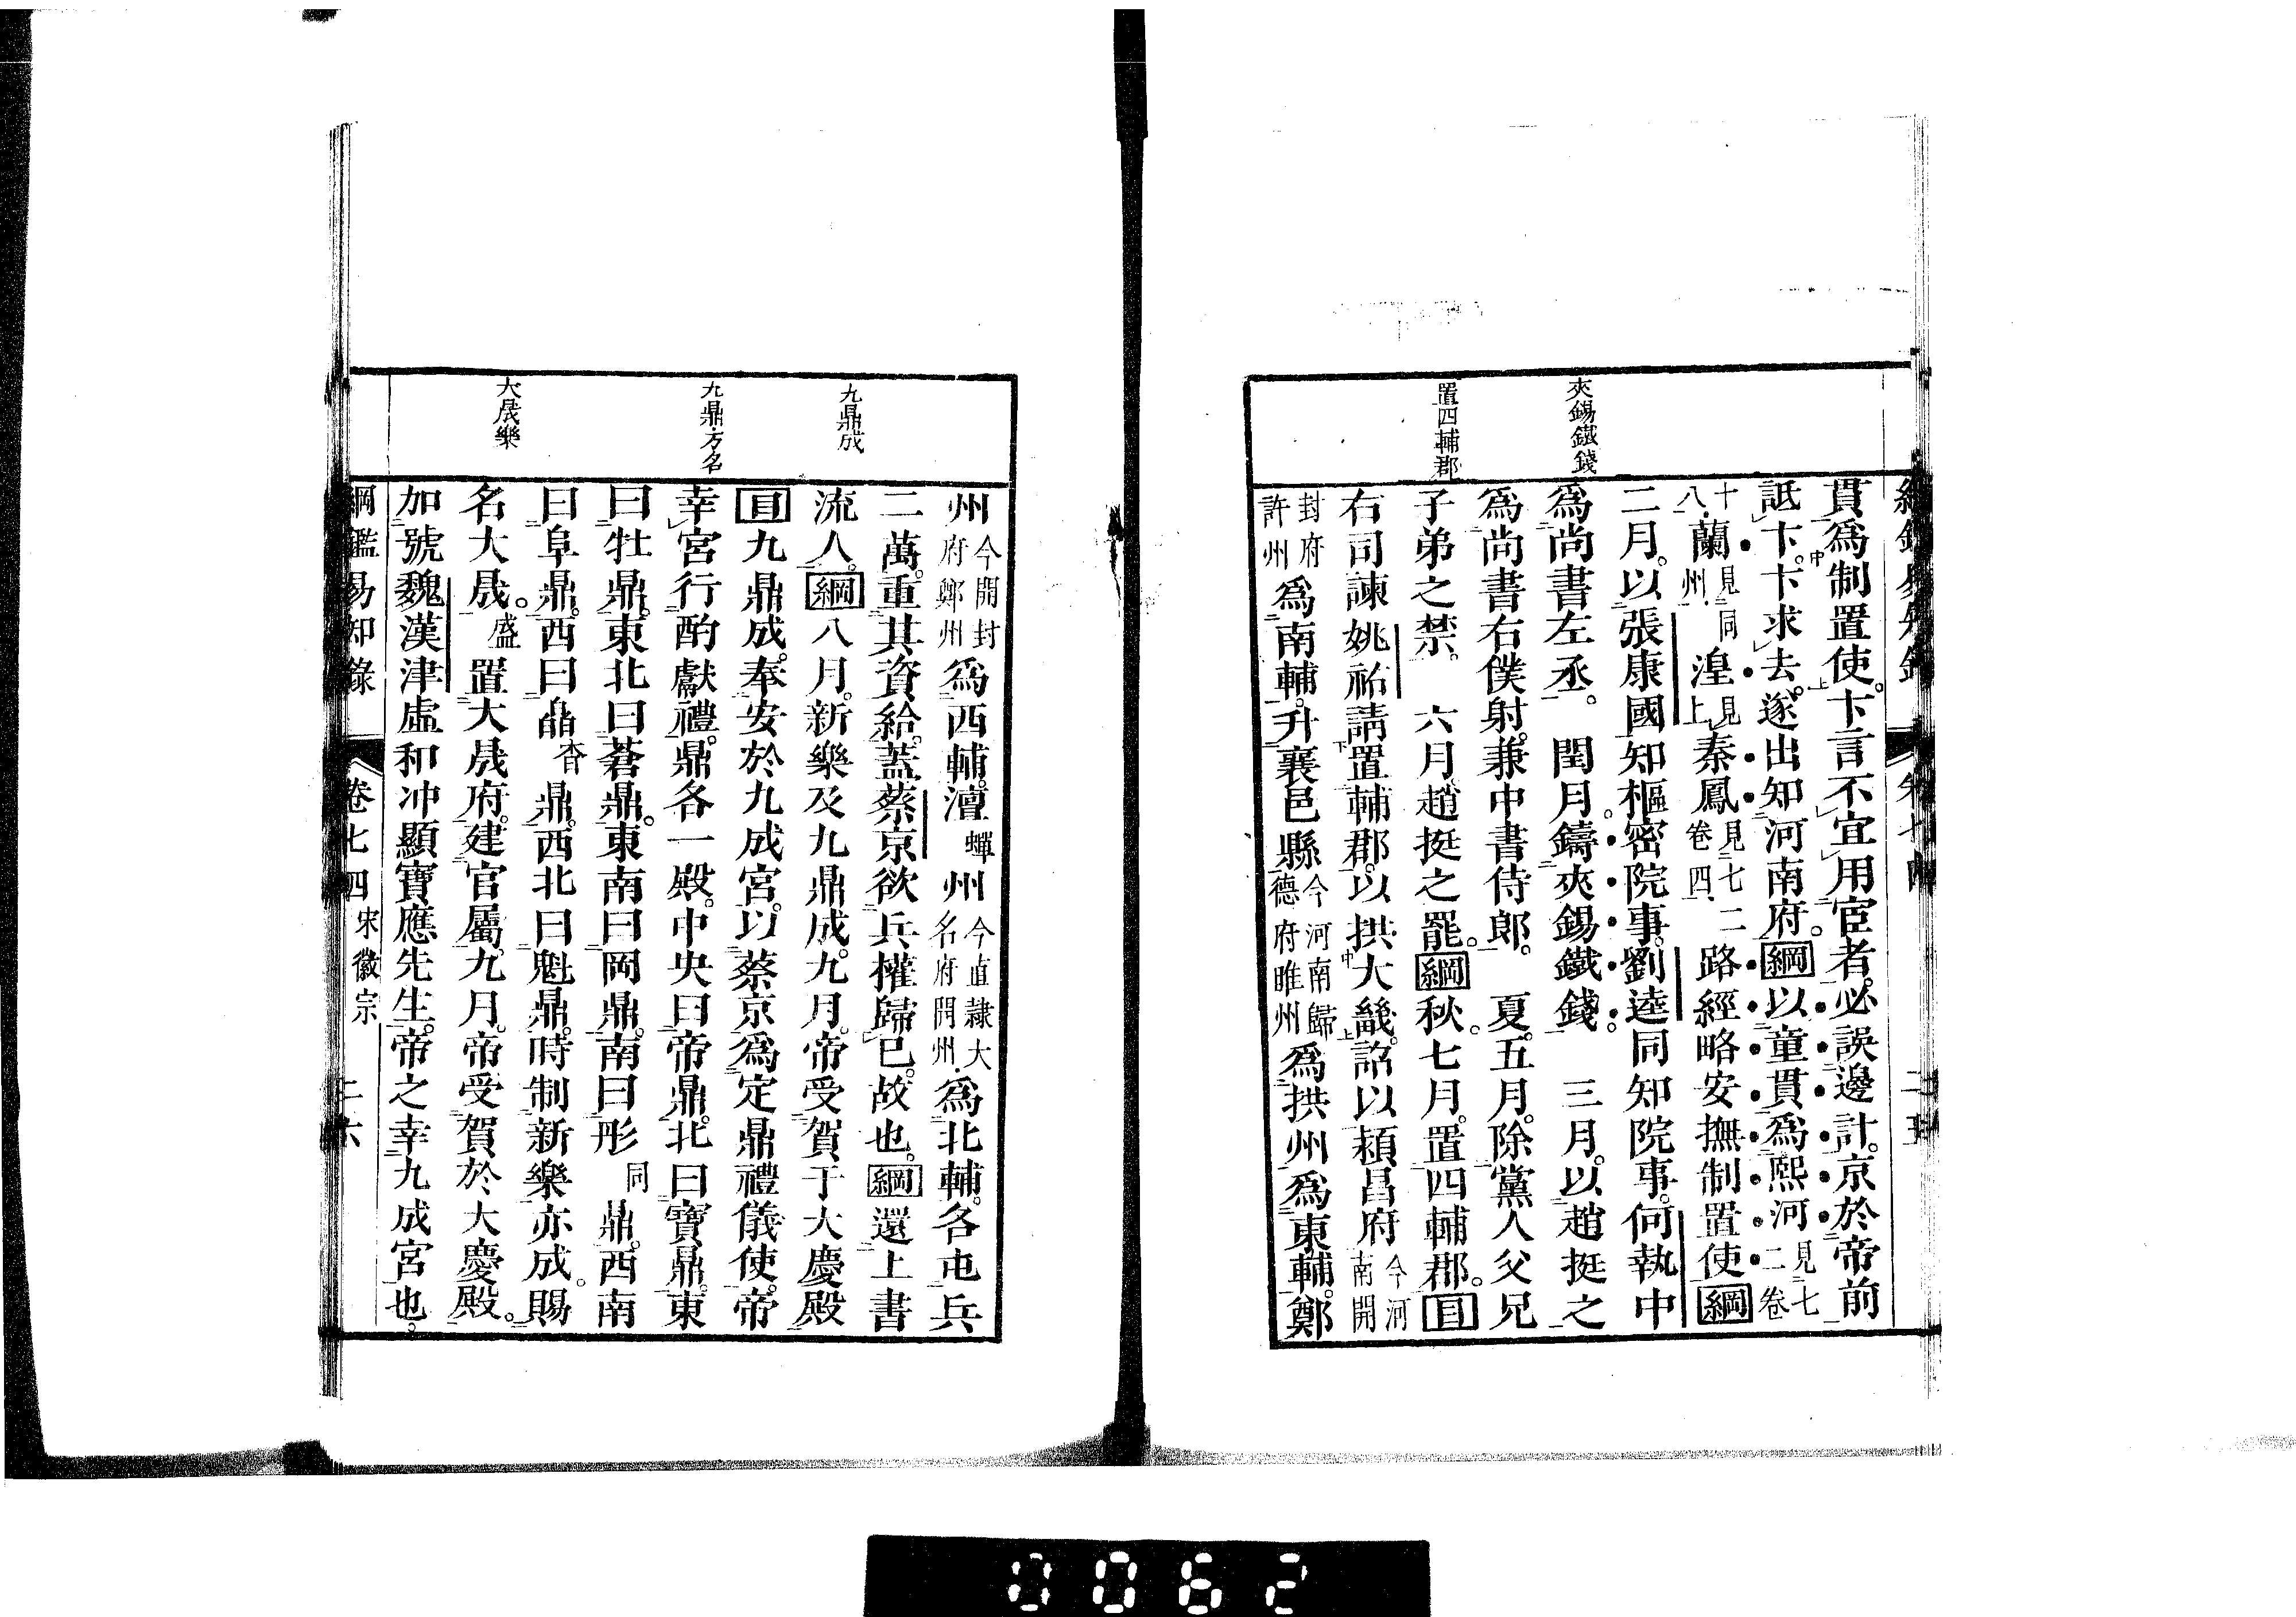 夾錫鐵錢
置四輔郡
貫爲制置使。卞言不宜用宦者。必誤邊計。京於帝前
詆卞。卞求去。遂出知河南府。綱以童貫爲熙河見七二卷
十八蘭州見同湟見上秦鳳見七二卷四路經略安撫制置使綱
二月。以張康國知樞密院事。劉逵同知院事。何執中
爲尚書左丞。閏月。鑄夾錫鐵錢。三月。以趙挺之
爲尚書右僕射。兼中書侍郎。夏。五月。除黨人父兄
子弟之禁。六月趙挺之罷。綱秋。七月。置四輔郡。目
右司諫姚祐請置輔郡。以拱大畿。詔以潁昌府今河南開
封府許州爲南輔。升襄邑縣今河南歸德府睢州爲拱州爲東輔。鄭
九鼎成
九鼎方名
大晟樂
州今開封府鄭州爲西輔。澶蟬州今直隸大名府開州爲北輔。各屯兵
二萬。重其資給。蓋蔡京欲兵權歸已。故也。綱還上書
流人。綱八月。新樂及九鼎成。九月。帝受賀于大慶殿
目九鼎成。奉安於九成宮。以蔡京爲定鼎禮儀使。帝
幸宮行酌獻禮。鼎各一殿。中央曰帝鼎。北曰寶鼎。東
曰牡鼎。東北曰蒼鼎。東南曰岡鼎。南曰彤同鼎。西南
曰阜鼎。西曰皛杳鼎。西北曰魁鼎。時制新樂亦成。賜
名大晟。盛置大晟府。建官屬。九月。帝受賀於大慶殿。
加號魏漢津虛和冲顯寶應先生。帝之幸九成宮也。
綱鑑易知錄 卷七四 宋徽宗 二六